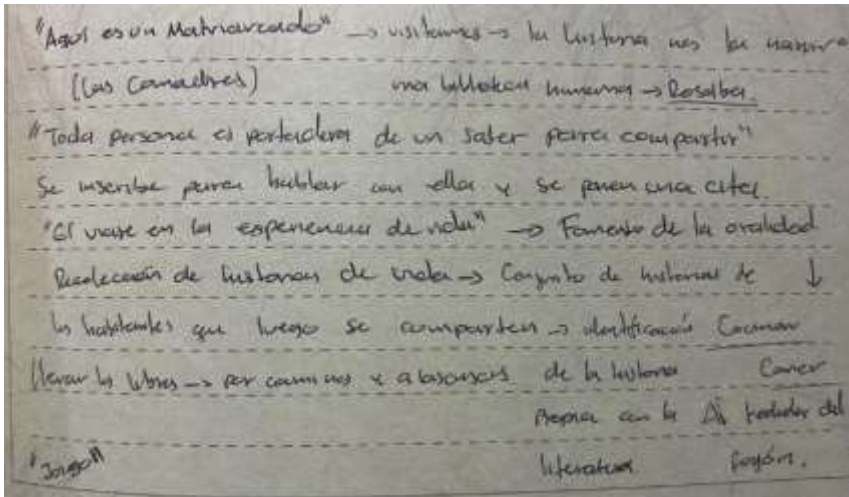 "Aquí es un Matriarcado" → visitamos → la historia nos la narra
(Las Comadres) una biblioteca humana → Rosalba.
"Toda persona es portadora de un saber para compartir"
Se inscribe para hablar con ellas y se ponen una cita.
"El viaje en la experiencia de vida" → Fomento de la oralidad
Recolección de historias de vida → Conjunto de historias de ↓
los habitantes que luego se comparten → identificación Cocinar
llevar los libros → por caminos y a lascansas de la historia Comer
Propia con la alrededor del
"Jorge" literatura fogón.